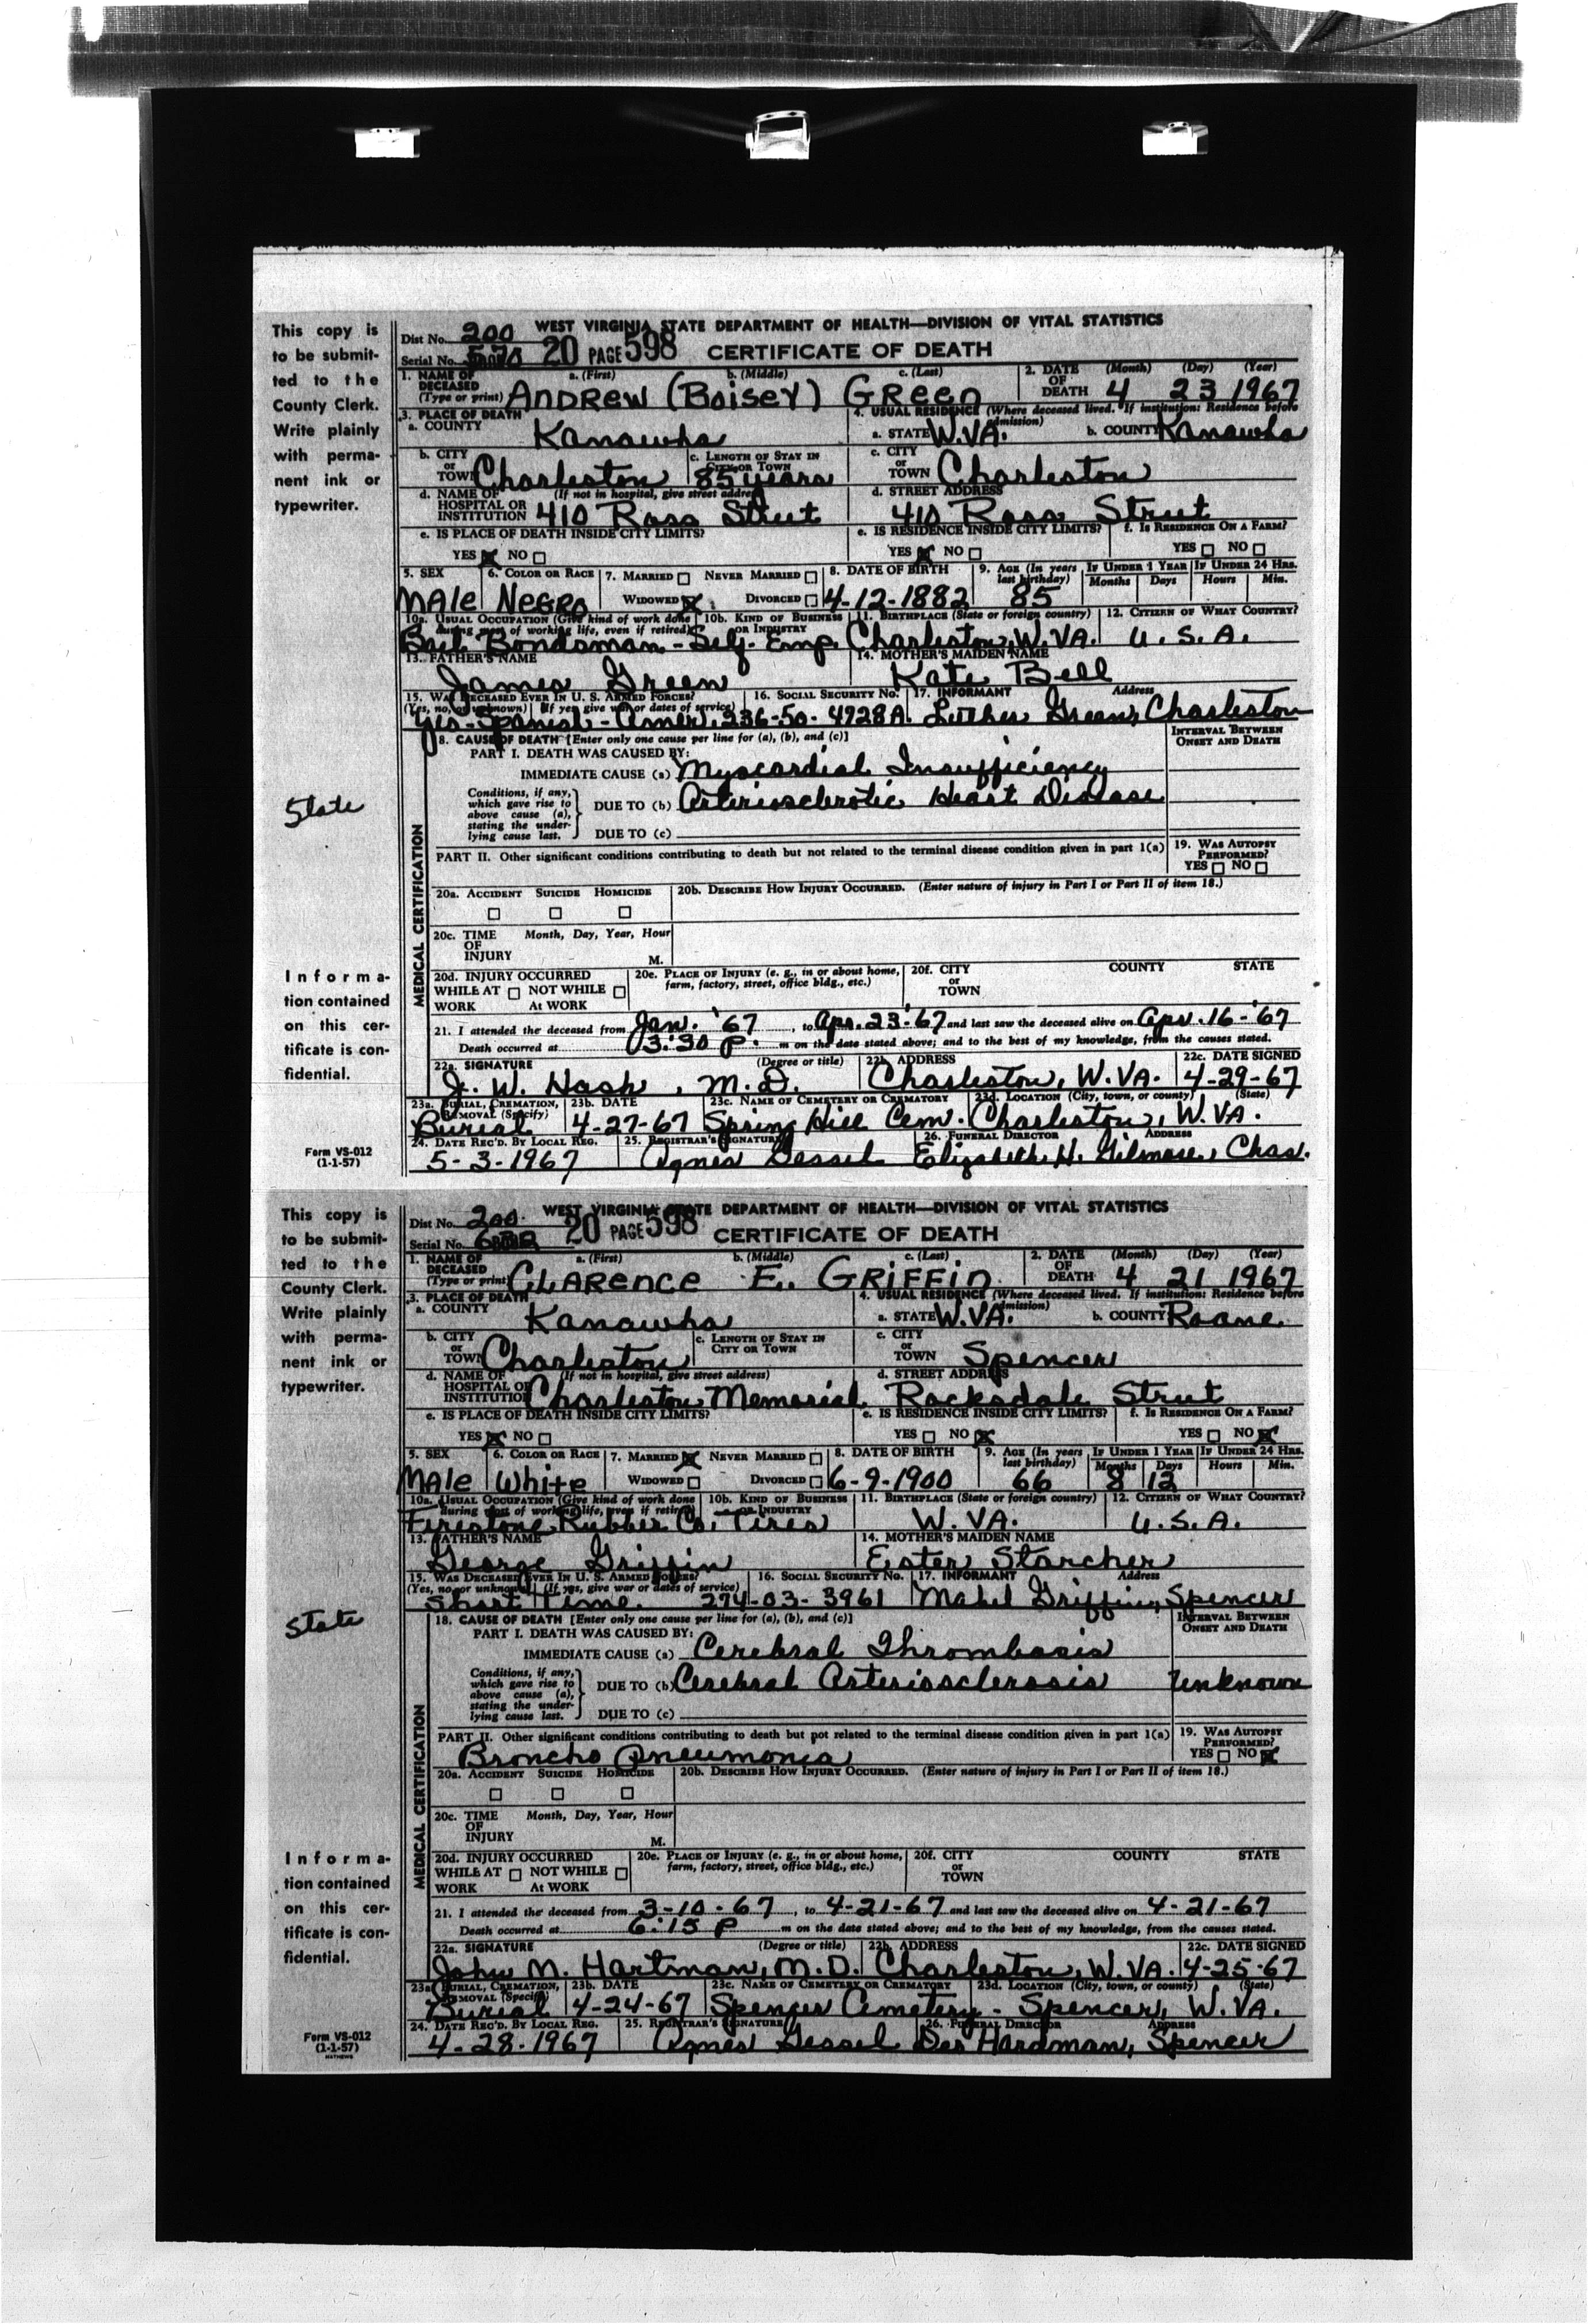 This copy is
to be submit-
ted to the
County Clerk.
Write plainly
with perma-
nent ink or
typewriter.
WEST VIRGINIA STATE DEPARTMENT OF HEALTH—DIVISION OF VITAL STATISTICS
Dist No. 200
Serial No. 20 PAGE 598 CERTIFICATE OF DEATH
1. NAME OF DECEASED (Type or print) a. (First) b. (Middle) c. (Last) 2. DATE OF DEATH (Month) (Day) (Year)
ANDREW (BOISEY) GREEN 4 23 1967
3. PLACE OF DEATH 4. USUAL RESIDENCE (Where deceased lived. If institution: Residence before admission)
a. COUNTY Kanawha a. STATE W.VA. b. COUNTY Kanawha
b. CITY or TOWN Charleston c. LENGTH OF STAY IN CITY OR TOWN 85 years c. CITY or TOWN Charleston
d. NAME OF HOSPITAL OR INSTITUTION (If not in hospital, give street address) 410 Ross Street d. STREET ADDRESS 410 Ross Street
e. IS PLACE OF DEATH INSIDE CITY LIMITS? e. IS RESIDENCE INSIDE CITY LIMITS? f. IS RESIDENCE ON A FARM?
YES NO YES NO YES NO
5. SEX 6. COLOR OR RACE 7. MARRIED NEVER MARRIED 8. DATE OF BIRTH 9. AGE (In years last birthday) IF UNDER 1 YEAR IF UNDER 24 HRS.
Months Days Hours Min.
MALE NEGRO WIDOWED DIVORCED 4-12-1882 85
10a. USUAL OCCUPATION (Give kind of work done during most of working life, even if retired) 10b. KIND OF BUSINESS OR INDUSTRY 11. BIRTHPLACE (State or foreign country) 12. CITIZEN OF WHAT COUNTRY?
Bail Bondsman - Self. Emp. Charleston, W.VA. U.S.A.
13. FATHER'S NAME 14. MOTHER'S MAIDEN NAME
James Green Kate Bell
15. WAS DECEASED EVER IN U. S. ARMED FORCES? (Yes, no, or unknown) (If yes give war or dates of service) 16. SOCIAL SECURITY NO. 17. INFORMANT Address
Yes-Spanish-Amer. 236-50-4928A. Luther Green, Charleston
18. CAUSE OF DEATH [Enter only one cause per line for (a), (b), and (c)] INTERVAL BETWEEN ONSET AND DEATH
PART I. DEATH WAS CAUSED BY:
IMMEDIATE CAUSE (a) Myocardial Insufficiency
Conditions, if any, which gave rise to above cause (a), stating the underlying cause last. DUE TO (b) Arteriosclerotic Heart Disease
DUE TO (c)
State
MEDICAL CERTIFICATION
PART II. Other significant conditions contributing to death but not related to the terminal disease condition given in part 1(a) 19. WAS AUTOPSY PERFORMED?
YES NO
20a. ACCIDENT SUICIDE HOMICIDE 20b. DESCRIBE HOW INJURY OCCURRED. (Enter nature of injury in Part I or Part II of item 18.)
20c. TIME OF INJURY Month, Day, Year, Hour
M.
20d. INJURY OCCURRED 20e. PLACE OF INJURY (e. g., in or about home, farm, factory, street, office bldg., etc.) 20f. CITY or TOWN COUNTY STATE
WHILE AT WORK NOT WHILE At WORK
Informa-
tion contained
on this cer-
tificate is con-
fidential.
21. I attended the deceased from Jan. '67, to Apr. 23-'67 and last saw the deceased alive on Apr. 16-'67
Death occurred at 3:30 P. m on the date stated above; and to the best of my knowledge, from the causes stated.
22a. SIGNATURE (Degree or title) 22b. ADDRESS 22c. DATE SIGNED
J. W. Hash, M.D. Charleston, W.VA. 4-29-67
23a. BURIAL, CREMATION, REMOVAL (Specify) 23b. DATE 23c. NAME OF CEMETERY OR CREMATORY 23d. LOCATION (City, town, or county) (State)
Burial 4-27-67 Spring Hill Cem. Charleston, W.VA.
24. DATE REC'D. BY LOCAL REG. 25. REGISTRAR'S SIGNATURE 26. FUNERAL DIRECTOR ADDRESS
5-3-1967 Agnes Gessel Elizabeth H. Gilmore, Chas.
Form VS-012
(1-1-57)
This copy is
to be submit-
ted to the
County Clerk.
Write plainly
with perma-
nent ink or
typewriter.
WEST VIRGINIA STATE DEPARTMENT OF HEALTH—DIVISION OF VITAL STATISTICS
Dist No. 200
Serial No. 20 PAGE 598 CERTIFICATE OF DEATH
1. NAME OF DECEASED (Type or print) a. (First) b. (Middle) c. (Last) 2. DATE OF DEATH (Month) (Day) (Year)
CLARENCE E. GRIFFIN 4 21 1967
3. PLACE OF DEATH 4. USUAL RESIDENCE (Where deceased lived. If institution: Residence before admission)
a. COUNTY Kanawha a. STATE W.VA. b. COUNTY Roane
b. CITY or TOWN Charleston c. LENGTH OF STAY IN CITY OR TOWN c. CITY or TOWN Spencer
d. NAME OF HOSPITAL OR INSTITUTION (If not in hospital, give street address) Charleston Memorial d. STREET ADDRESS Rocksdale Street
e. IS PLACE OF DEATH INSIDE CITY LIMITS? e. IS RESIDENCE INSIDE CITY LIMITS? f. IS RESIDENCE ON A FARM?
YES NO YES NO YES NO
5. SEX 6. COLOR OR RACE 7. MARRIED NEVER MARRIED 8. DATE OF BIRTH 9. AGE (In years last birthday) IF UNDER 1 YEAR IF UNDER 24 HRS.
Months Days Hours Min.
MALE White WIDOWED DIVORCED 6-9-1900 66 8 12
10a. USUAL OCCUPATION (Give kind of work done during most of working life, even if retired) 10b. KIND OF BUSINESS OR INDUSTRY 11. BIRTHPLACE (State or foreign country) 12. CITIZEN OF WHAT COUNTRY?
Firestone Rubber Co. Tires W.VA. U.S.A.
13. FATHER'S NAME 14. MOTHER'S MAIDEN NAME
George Griffin Ester Starcher
15. WAS DECEASED EVER IN U. S. ARMED FORCES? (Yes, no or unknown) (If yes, give war or dates of service) 16. SOCIAL SECURITY NO. 17. INFORMANT Address
Short Time. 274-03-3961 Mabel Griffin, Spencer
18. CAUSE OF DEATH [Enter only one cause per line for (a), (b), and (c)] INTERVAL BETWEEN ONSET AND DEATH
PART I. DEATH WAS CAUSED BY:
IMMEDIATE CAUSE (a) Cerebral Thrombosis
Conditions, if any, which gave rise to above cause (a), stating the underlying cause last. DUE TO (b) Cerebral Arteriosclerosis Unknown
DUE TO (c)
State
MEDICAL CERTIFICATION
PART II. Other significant conditions contributing to death but not related to the terminal disease condition given in part 1(a) 19. WAS AUTOPSY PERFORMED?
Broncho Pneumonia YES NO
20a. ACCIDENT SUICIDE HOMICIDE 20b. DESCRIBE HOW INJURY OCCURRED. (Enter nature of injury in Part I or Part II of item 18.)
20c. TIME OF INJURY Month, Day, Year, Hour
M.
20d. INJURY OCCURRED 20e. PLACE OF INJURY (e. g., in or about home, farm, factory, street, office bldg., etc.) 20f. CITY or TOWN COUNTY STATE
WHILE AT WORK NOT WHILE At WORK
Informa-
tion contained
on this cer-
tificate is con-
fidential.
21. I attended the deceased from 3-10-67, to 4-21-67 and last saw the deceased alive on 4-21-67
Death occurred at 6:15 P m on the date stated above; and to the best of my knowledge, from the causes stated.
22a. SIGNATURE (Degree or title) 22b. ADDRESS 22c. DATE SIGNED
John M. Hartman, M.D. Charleston, W.VA. 4-25-67
23a. BURIAL, CREMATION, REMOVAL (Specify) 23b. DATE 23c. NAME OF CEMETERY OR CREMATORY 23d. LOCATION (City, town, or county) (State)
Burial 4-24-67 Spencer Cemetery - Spencer, W.VA.
24. DATE REC'D. BY LOCAL REG. 25. REGISTRAR'S SIGNATURE 26. FUNERAL DIRECTOR ADDRESS
4-28-1967 Agnes Gessel Hardman, Spencer
Form VS-012
(1-1-57)
MATHEWS